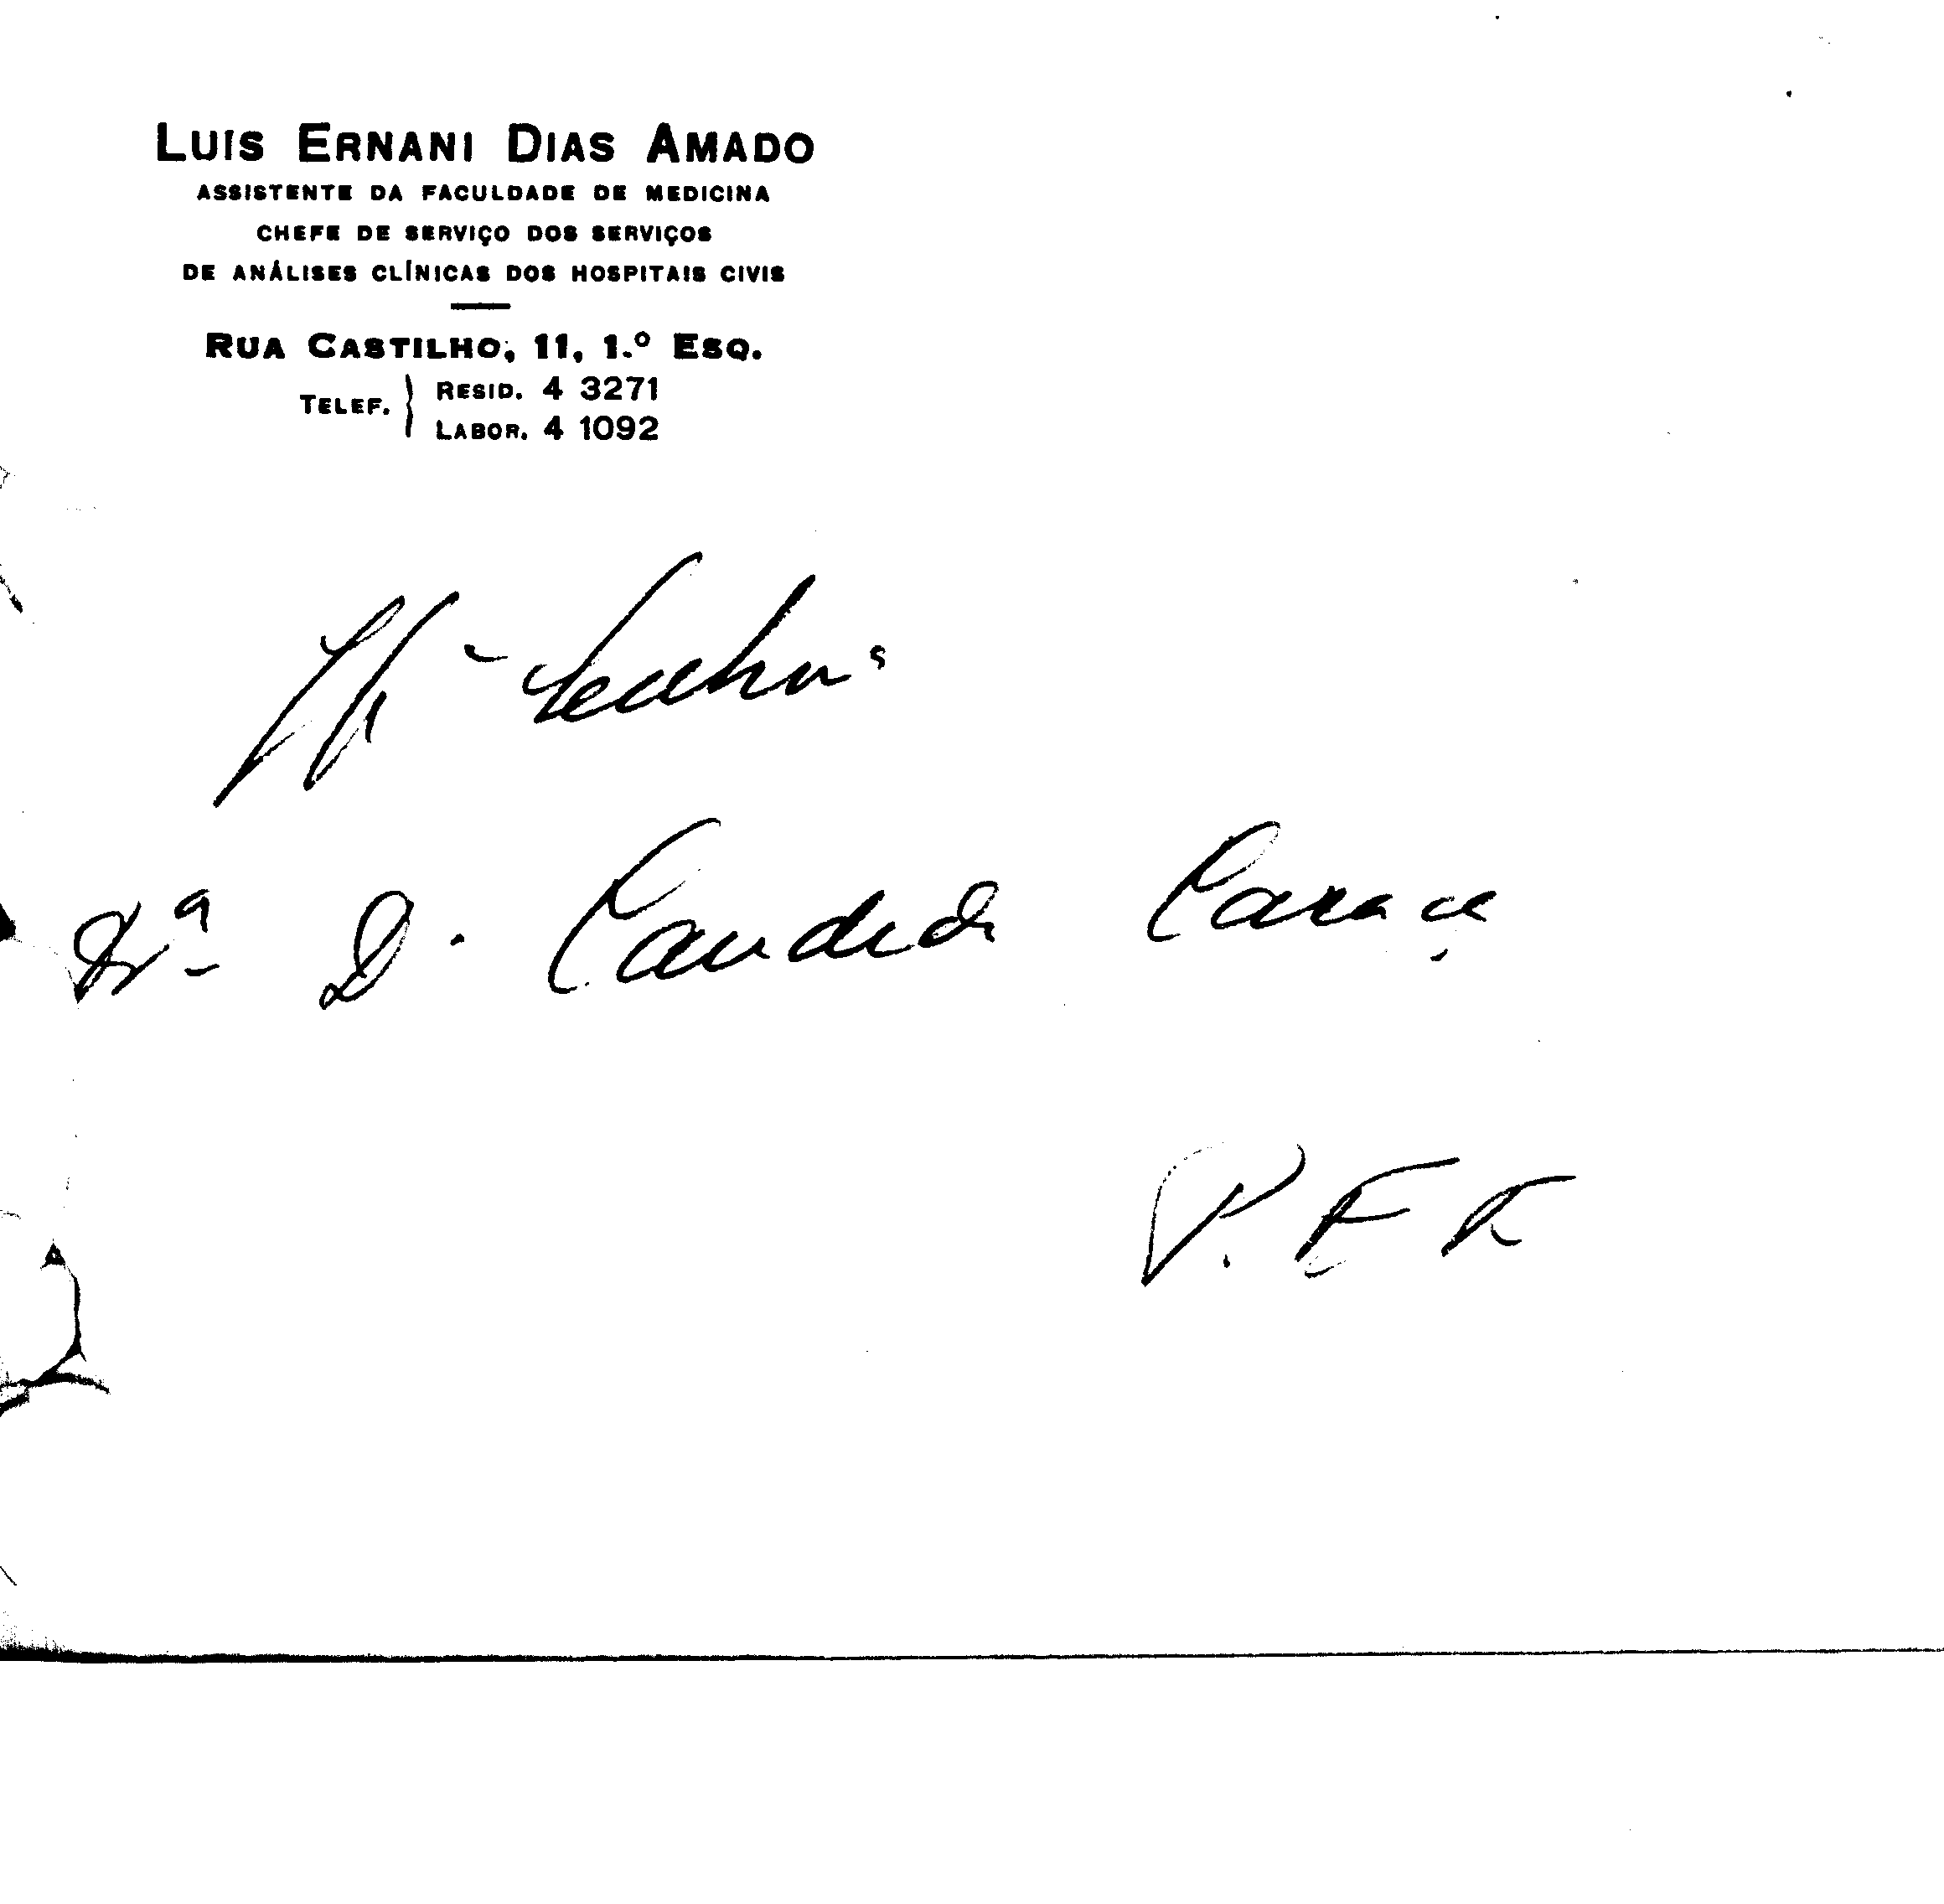 LUIS ERNANI DIAS AMADO
ASSISTENTE DA FACULDADE DE MEDICINA
CHEFE DE SERVIÇO DOS SERVIÇOS
DE ANÁLISES CLÍNICAS DOS HOSPITAIS CIVIS
RUA CASTILHO, 11, 1.º ESQ.
TELEF. } RESID. 4 3271
LABOR. 4 1092
Drª D. Candida Caraça
P. E. F.